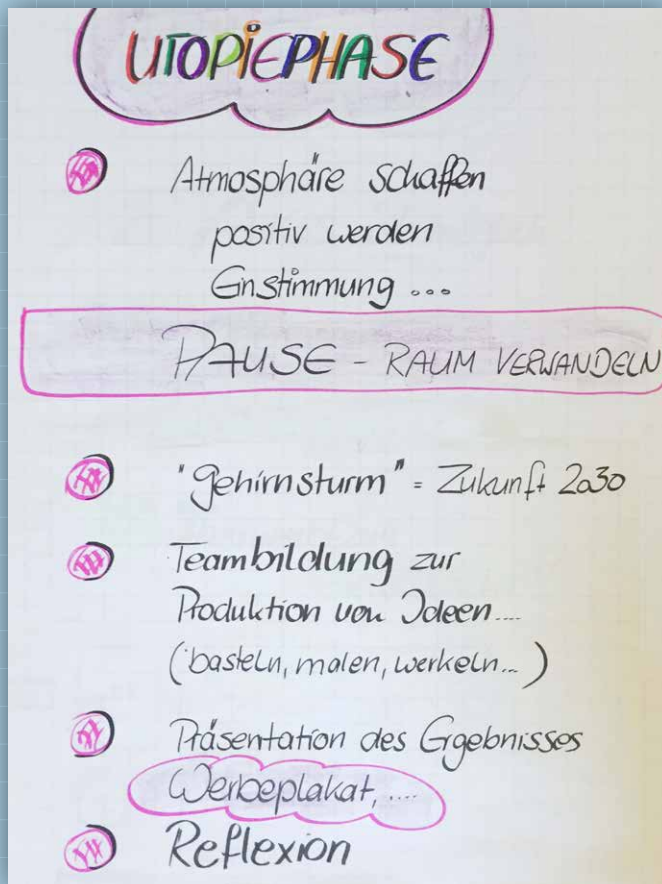 UTOPIEPHASE
Atmosphäre schaffen
positiv werden
Einstimmung ...
PAUSE - RAUM VERWANDELN
"Gehirnsturm" = Zukunft 2030
Teambildung zur
Produktion von Ideen....
(basteln, malen, werkeln...)
Präsentation des Ergebnisses
Werbeplakat, ....
Reflexion